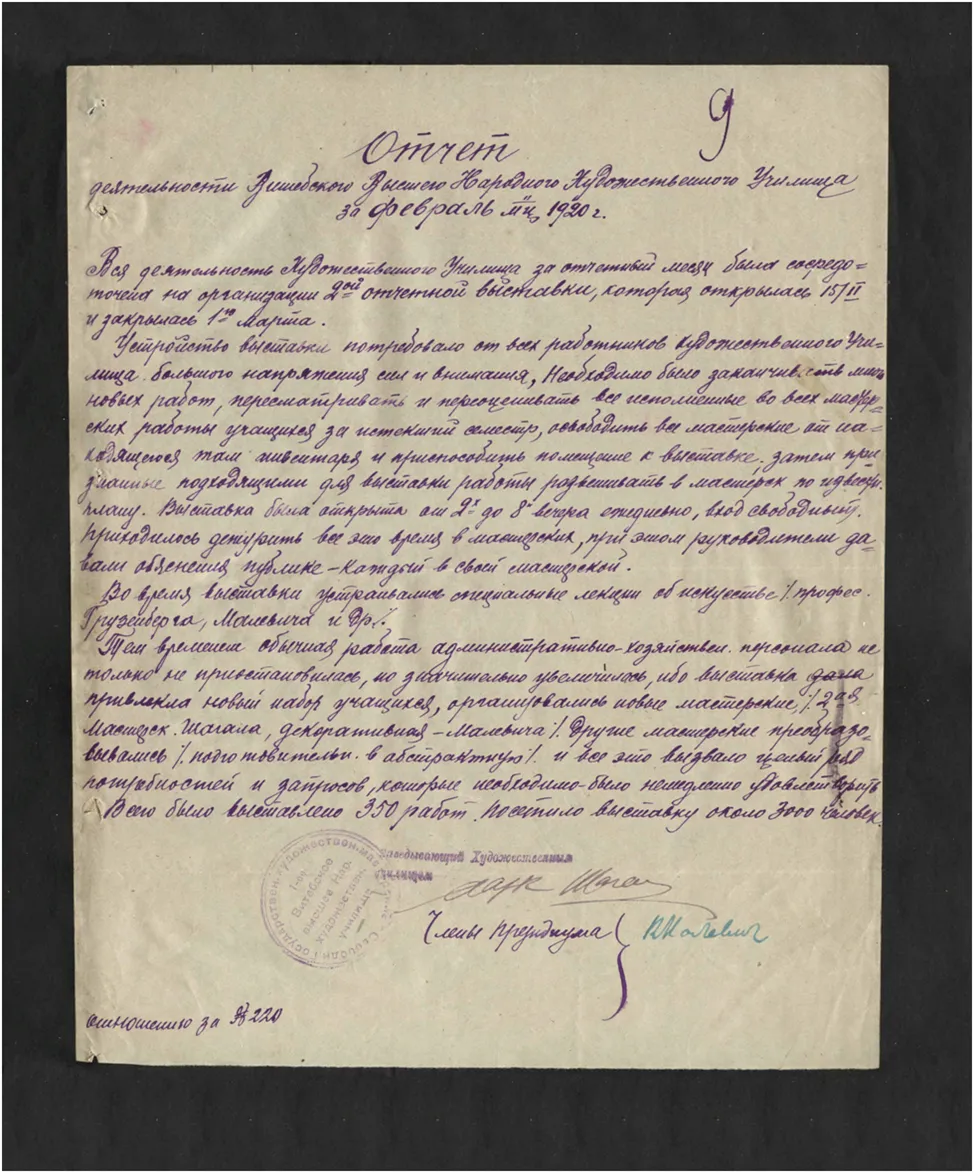 9
Отчет
деятельности Витебского Высшего Народного Художественного Училища
за февраль м-ц 1920 г.
Вся деятельность Художественного Училища за отчетный месяц была сосредо=
точена на организации 2ой отчетной выставки, которая открылась 15/II
и закрылась 1го Марта.
Устройство выставки потребовало от всех работников Художественного Учи-
лища большого напряжения сил и внимания, Необходимо было заканчив
новых работ, пересматривать и переоценивать все исполненные во всех мастер-
ских работы учащихся за истекший семестр, освободить все мастерские от на-
ходящегося там инвентаря и приспособить помещение к выставке. затем при
знанные подходящими для выставки работы развешивать в мастерск по
плану. Выставка была открыта от 2х до 8 вечера ежедневно, вход свободный.
Приходилось дежурить все это время в мастерских, при этом руководители да-
вали объяснения публике - каждый в своей мастерской.
Во время выставки устраивались специальные лекции об искусстве /. профес.
Грузенберга, Малевича и др/.
Тем временем обычная работа административно-хозяйствен. персонала не
только не приостановилась, но значительно увеличилась, ибо выставка дала
привлекла новый набор учащихся, организовались новые мастерские /. 2ая
Мастерск. Шагала, декоративная - Малевича /. Другие мастерские преобразо-
вывались /. подготовительн. в абстрактную /. и все это вызвало целый ряд
потребностей и запросов, которые необходимо было немедленно удовлетворить
Всего было выставлено 350 работ. Посетило выставку около 3000 человек.
Заведывающий Художественным
училищем
Марк Шагал
Члены Президиума } К Малевич
Витебское
высшее Нар.
художествен.
училище
отношению за № 220